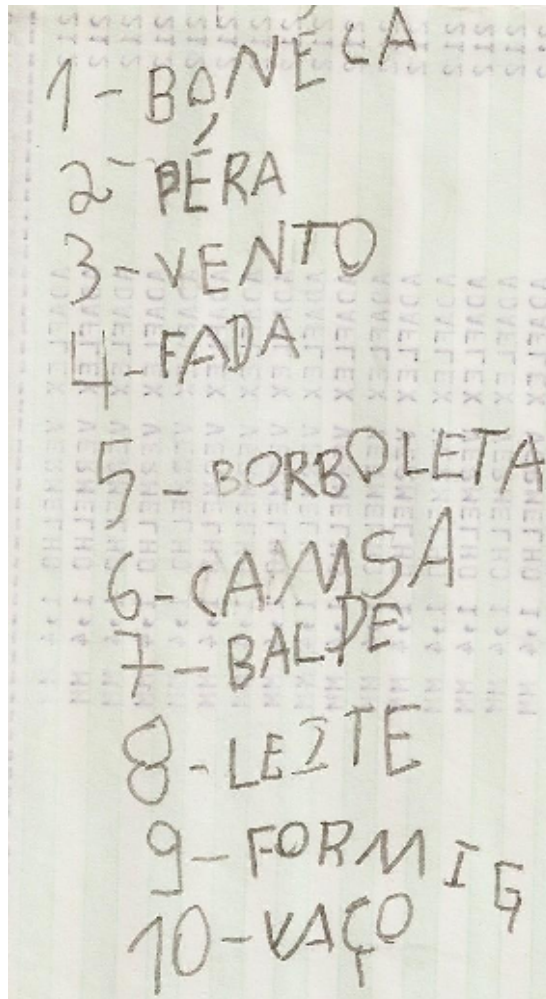 1-BONÉCA
2-PÉRA
3-VENTO
4-FADA
5-BORBOLETA
6-CAMSA
7-BALDE
8-LEITE
9-FORMIG
10-VAÇO